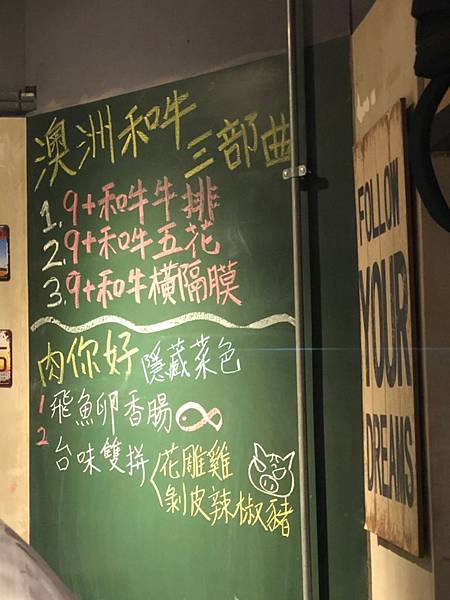 澳洲和牛三部曲
1. 9+和牛牛排
2. 9+和牛五花
3. 9+和牛橫隔膜
肉你好 隱藏菜色
1 飛魚卵香腸
2 台味雙拼 花雕雞
剝皮辣椒豬
FOLLOW
YOUR
DREAMS